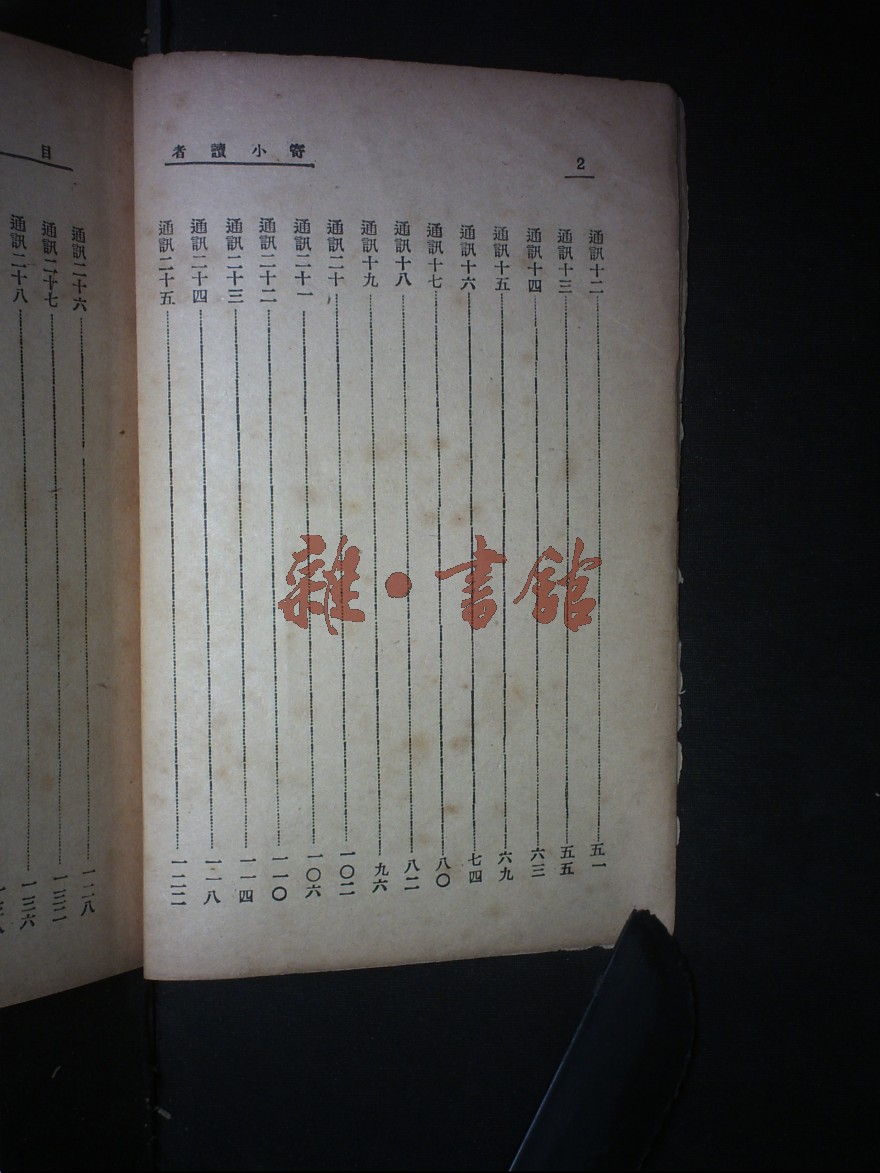 2
寄小讀者
通訊十二 五一
通訊十三 五五
通訊十四 六三
通訊十五 六九
通訊十六 七四
通訊十七 八〇
通訊十八 八二
通訊十九 九六
通訊二十 一〇二
通訊二十一 一〇六
通訊二十二 一一〇
通訊二十三 一一四
通訊二十四 一一八
通訊二十五 一二二
目
通訊二十六 一二八
通訊二十七 一三二
通訊二十八 一三六
雜·書館